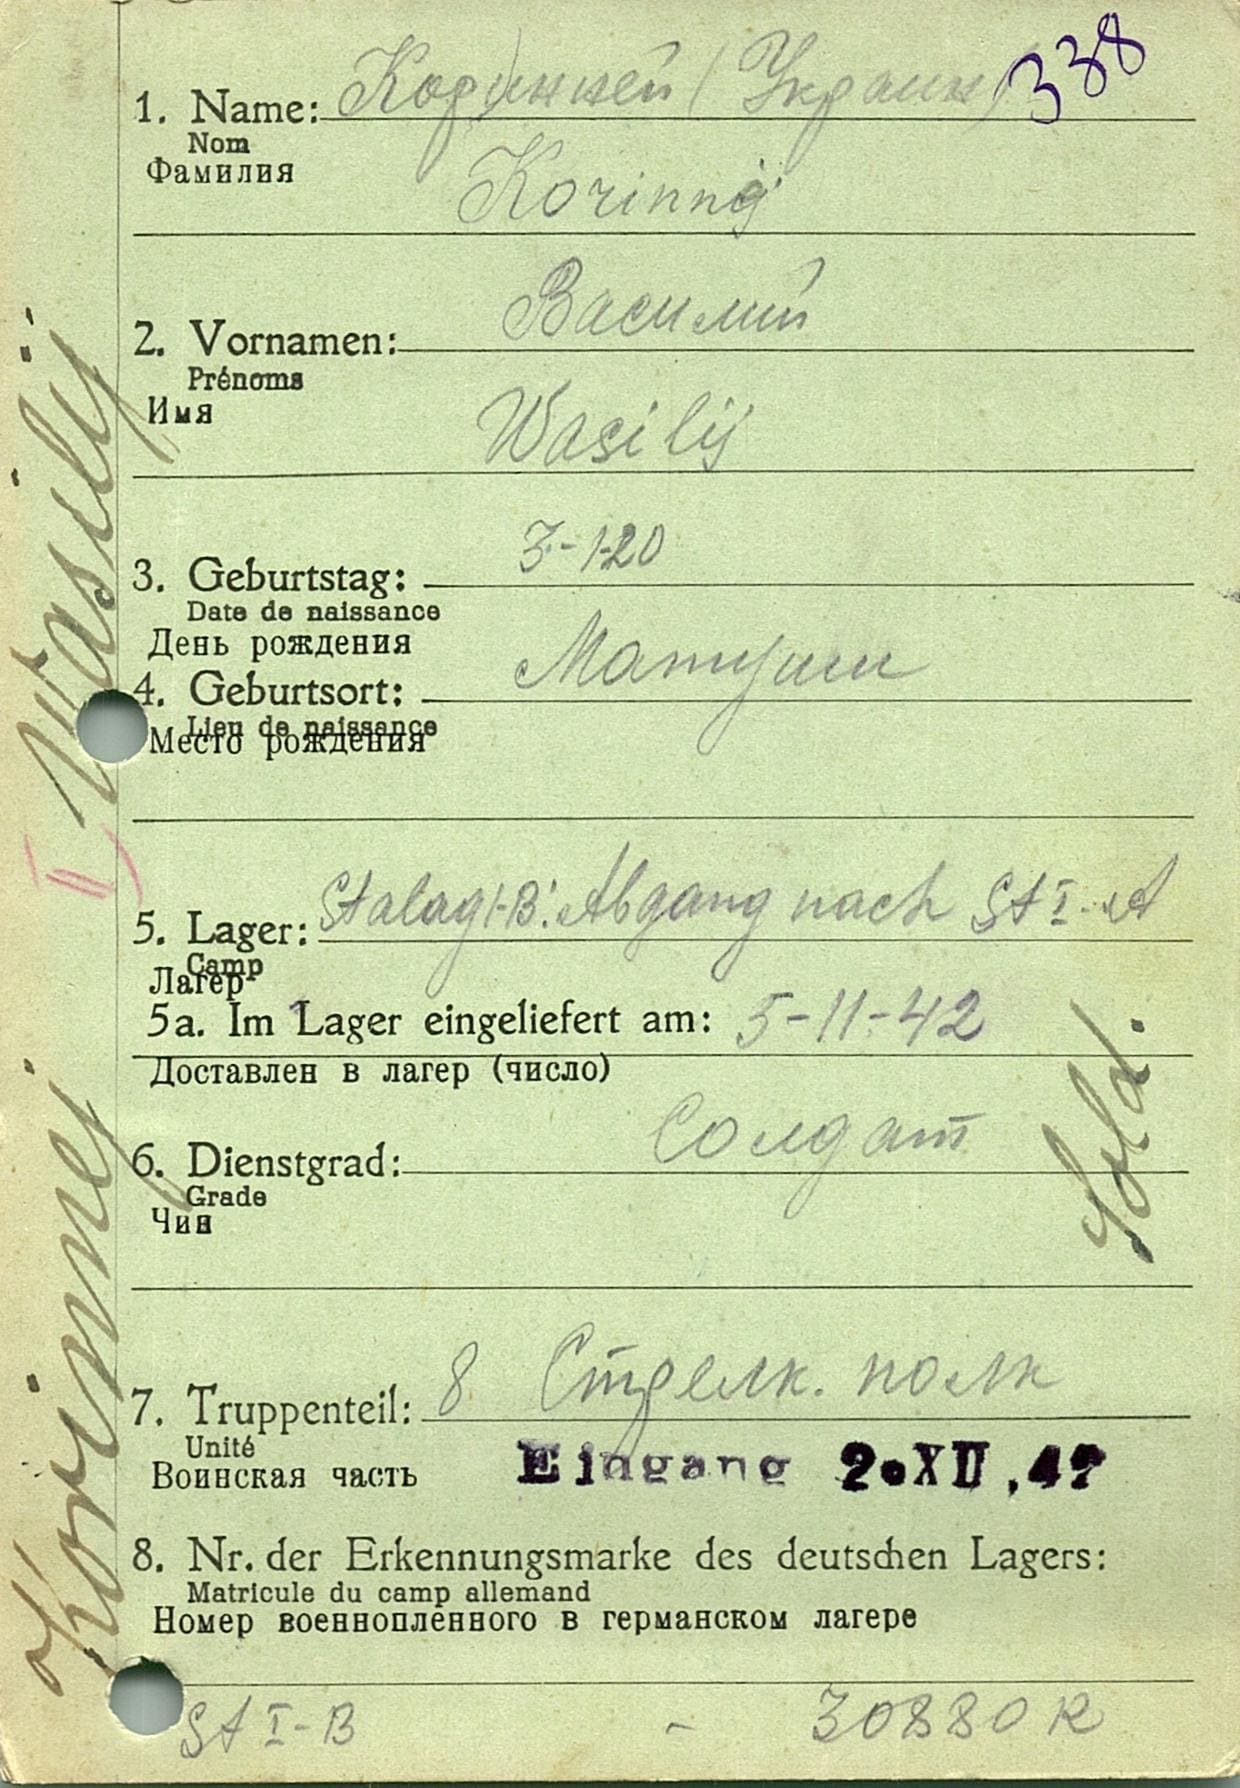 338
1. Name: Коринней (Украин)
Nom
Фамилия
Korinnej
2. Vornamen: Василий
Prénoms
Имя
Wasilij
3. Geburtstag: 3-1-20
Date de naissance
День рождения
4. Geburtsort: Матуши
Lieu de naissance
Место рождения
5. Lager: Stalag I-B: Abgang nach St I-A
Camp
Лагер
5a. Im Lager eingeliefert am: 5-11-42
Доставлен в лагер (число)
6. Dienstgrad: Солдат
Grade
Чин
Sold.
7. Truppenteil: 8 Стрелк. полк
Unité
Воинская часть
Eingang 2. XII. 42
8. Nr. der Erkennungsmarke des deutschen Lagers:
Matricule du camp allemand
Номер военнопленного в германском лагере
St I-B - 30880 R
Korinnej Wasilij
II)